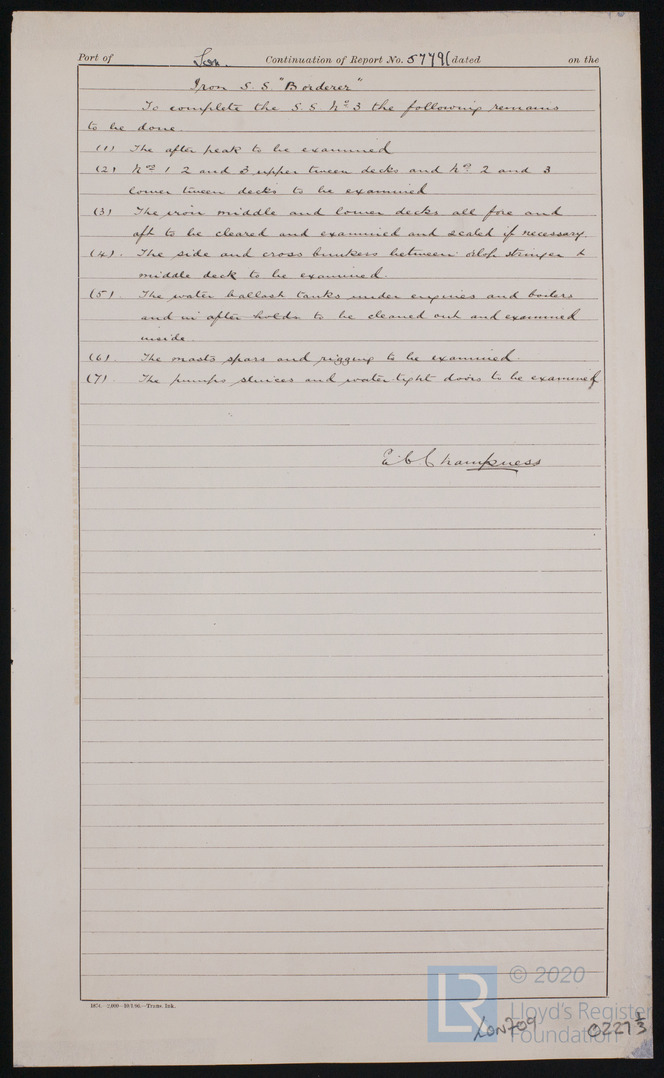 Port of Lon. Continuation of Report No. 57791 dated on the
Iron S.S. "Borderer"
To complete the S.S. No 3 the following remains
to be done.
(1) The after peak to be examined
(2) Nos 1 2 and 3 upper tween decks and No 2 and 3
lower tween decks to be examined
(3) The iron middle and lower decks all fore and
aft to be cleared and examined and scaled if necessary.
(4). The side and cross bunkers between orlop stringer &
middle deck to be examined.
(5). The water ballast tanks under engines and boilers
and in after holds to be cleaned out and examined
inside.
(6). The masts spars and rigging to be examined.
(7). The pumps sluices and water tight doors to be examined
E. C. Champness
1874.—2,000—19/1/90.—Trans. Ink.
LR
© 2020
Lloyd's Register
Foundation
LON709
0227 1/3